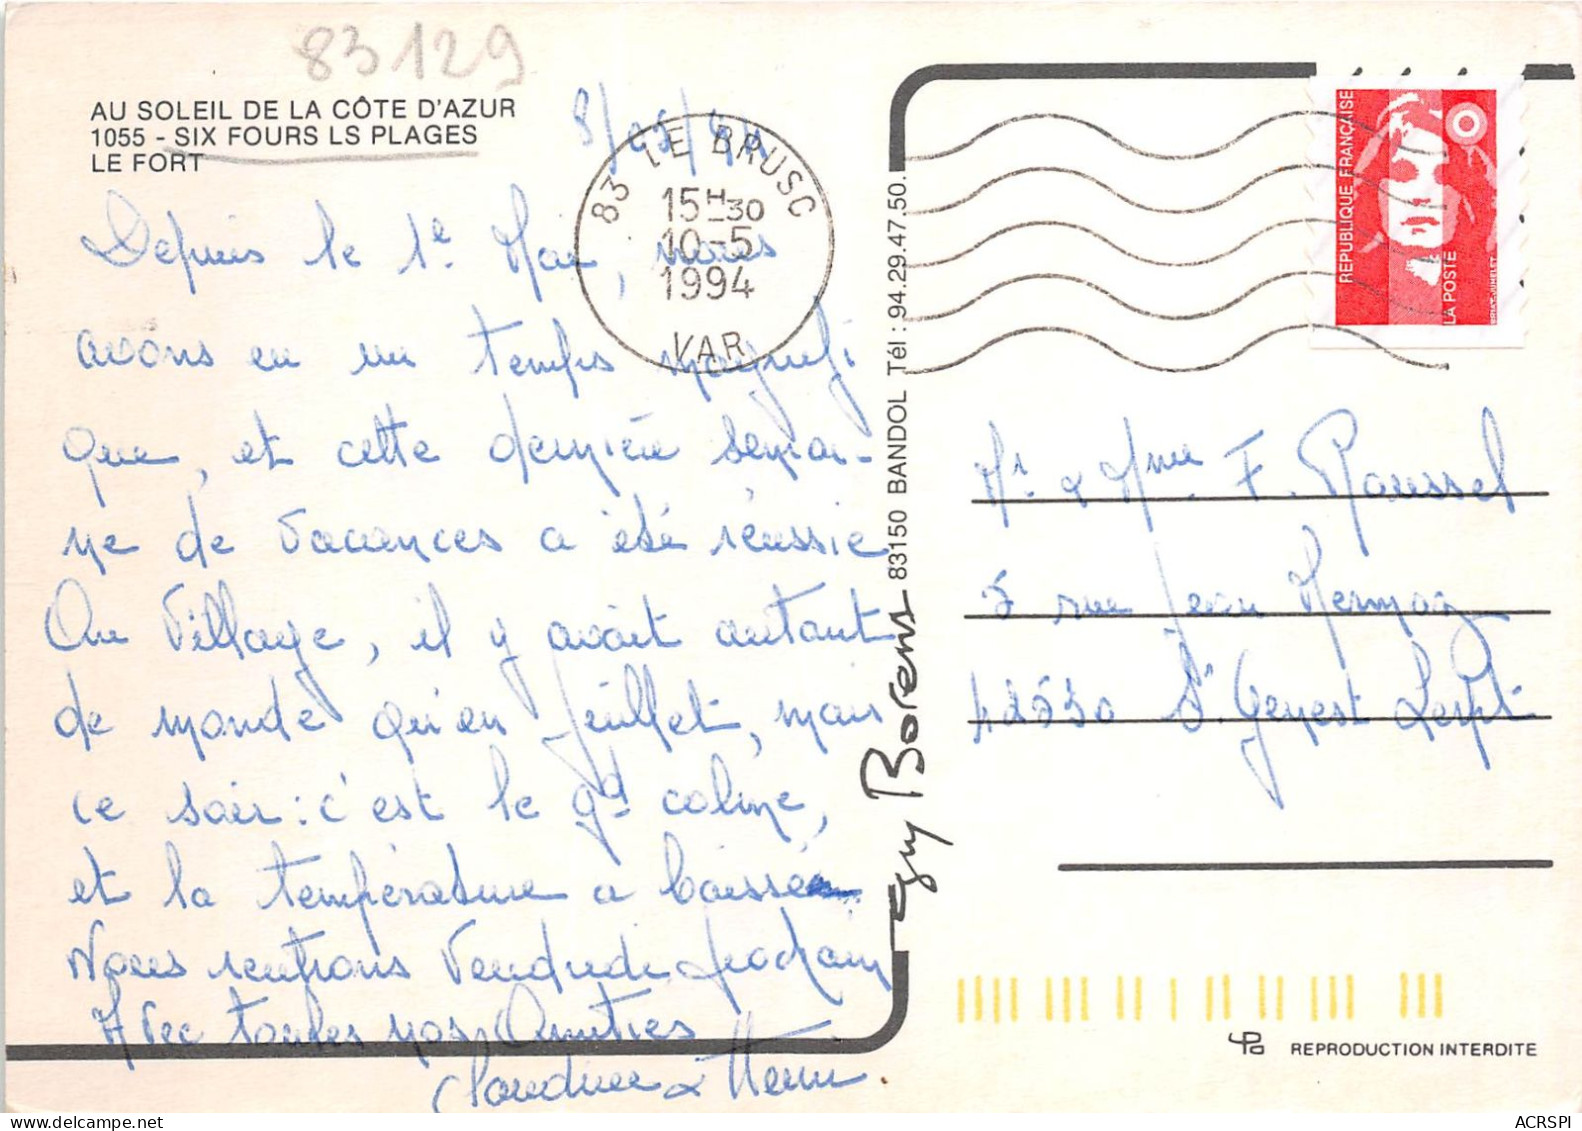 83129
AU SOLEIL DE LA CÔTE D'AZUR
1055 - SIX FOURS LS PLAGES
LE FORT
8/05/94
83 LE BRUSC
15H-30
10-5
1994
VAR
Depuis le 1e Mai, nous
avons eu un temps magnifi
que, et cette dernière semai-
ne de vacances a été réussie
Au Village, il y avait autant
de monde qu'en Juillet, mais
ce soir : c'est le gd calme,
et la température a baissé
Nous rentrons Vendredi prochain
Avec toutes nos Amitiés
Claudine & Henri
guy Borens 83150 BANDOL Tél : 94.29.47.50.
RÉPUBLIQUE FRANÇAISE
LA POSTE
Mr & Mme F. Roussel
5 rue Jean Mermoz
42530 St Genest Lerpt
REPRODUCTION INTERDITE
ACRSPI